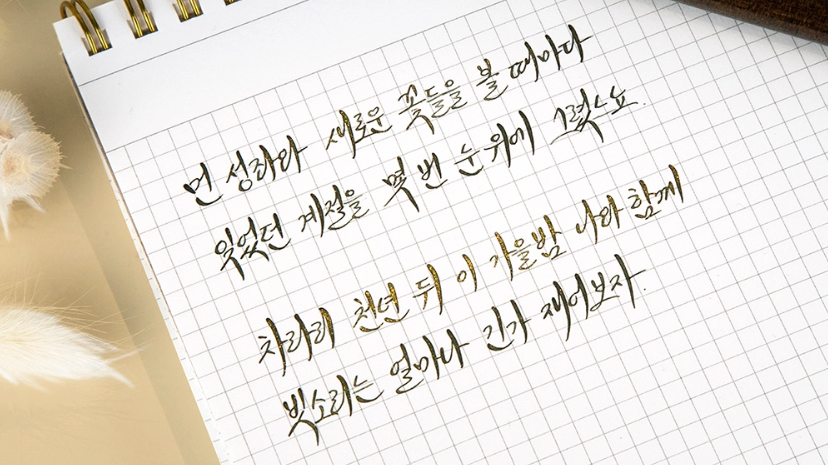 먼 성좌와 새로운 꽃들을 볼 때마다
잊었던 계절을 몇 번 눈 위에 그렸느뇨.
차라리 천년 뒤 이 가을밤 나와 함께
빗소리는 얼마나 긴가 재어보자.